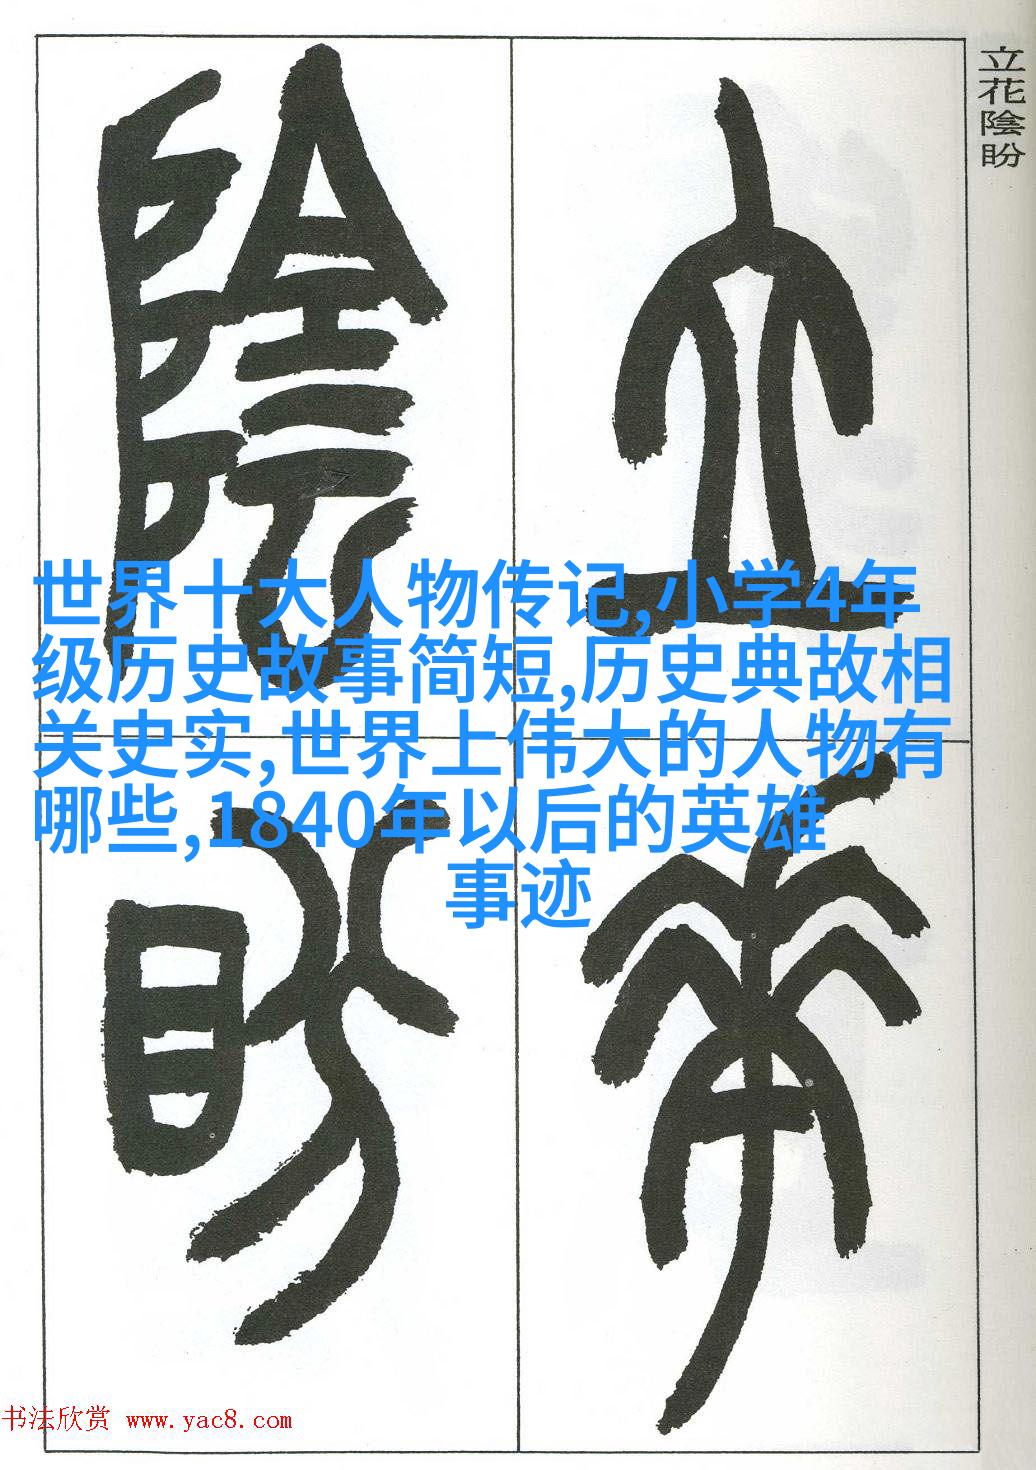 立花陰盼
立花
陰盼
世界十大人物传记,小学4年
级历史故事简短,历史典故相
关史实,世界上伟大的人物有
哪些,1840年以后的英雄
事迹
书法欣赏 www.yac8.com